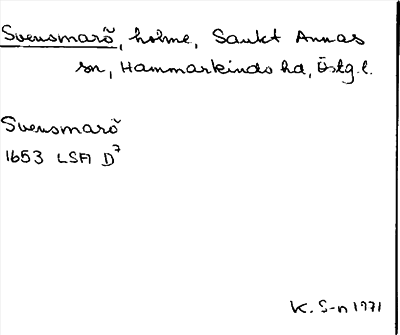 Svensmarö, holme, Sankt Annas
sn, Hammarkinds hd, Östg.l.
Svensmarö
1653 LSA D⁷
K. S-n 1971